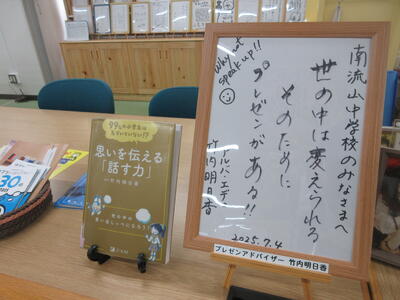 南流山中学校のみなさまへ
世の中は変えられる
そのために
プレゼンがある!!
アルバ・エデュ
竹内明日香
Why not
speak up!!
2025.7.4
プレゼンアドバイザー 竹内明日香
思いを伝える
「話す力」
竹内明日香
30